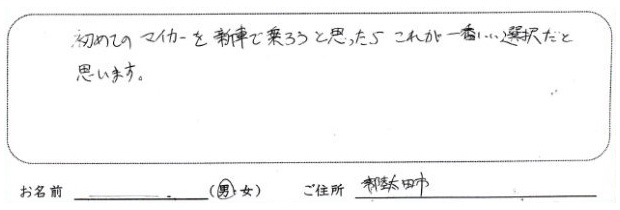 初めてのマイカーを新車で乗ろうと思ったら これが一番いい選択だと
思います。
お名前 (男・女) ご住所 常陸太田市